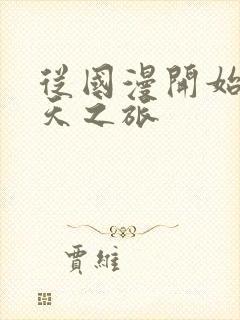 從國漫開始
天之旅
賈維